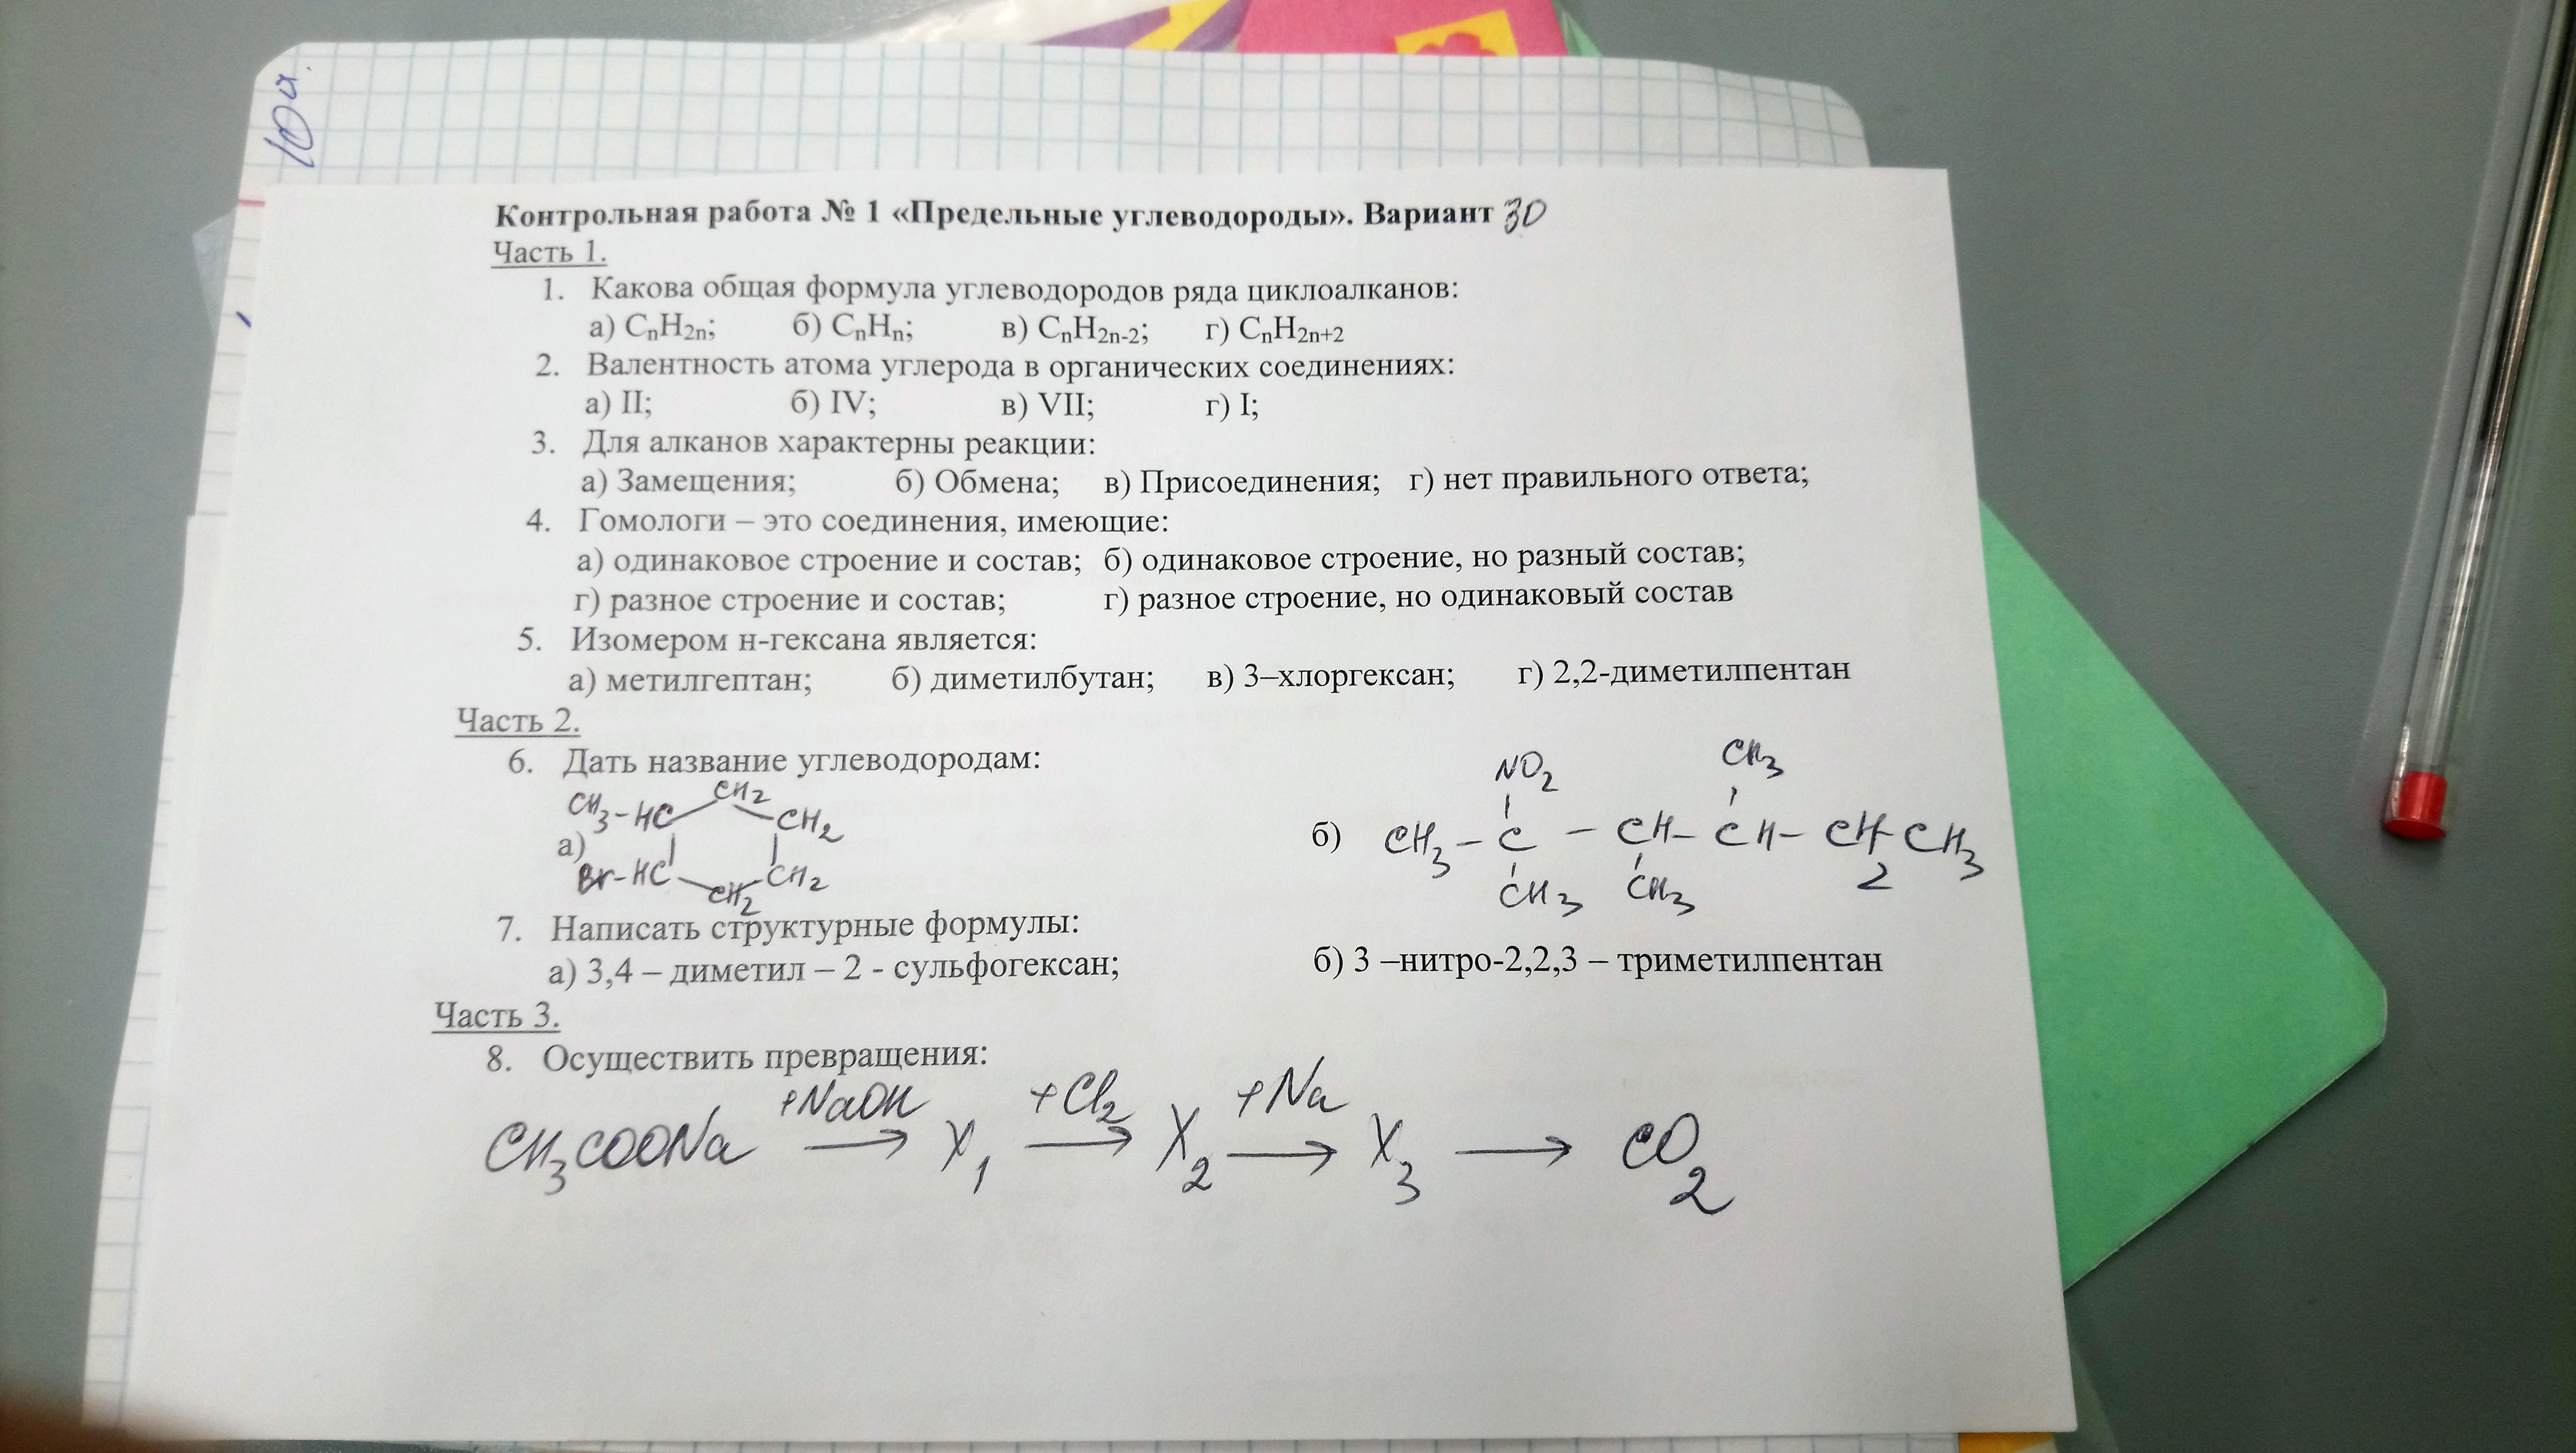 10а.
Контрольная работа № 1 «Предельные углеводороды». Вариант 30
Часть 1.
1. Какова общая формула углеводородов ряда циклоалканов:
а) CnH2n; б) CnHn; в) CnH2n-2; г) CnH2n+2
2. Валентность атома углерода в органических соединениях:
а) II; б) IV; в) VII; г) I;
3. Для алканов характерны реакции:
а) Замещения; б) Обмена; в) Присоединения; г) нет правильного ответа;
4. Гомологи – это соединения, имеющие:
а) одинаковое строение и состав; б) одинаковое строение, но разный состав;
г) разное строение и состав; г) разное строение, но одинаковый состав
5. Изомером н-гексана является:
а) метилгептан; б) диметилбутан; в) 3–хлоргексан; г) 2,2-диметилпентан
Часть 2.
6. Дать название углеводородам:
CH2
CH3-HC CH2
а)
Br-HC CH2
CH2
NO2 CH3
б) CH3 - C - CH - CH - CH2 - CH3
CH3 CH3
7. Написать структурные формулы:
а) 3,4 – диметил – 2 - сульфогексан; б) 3 –нитро-2,2,3 – триметилпентан
Часть 3.
8. Осуществить превращения:
+NaOH +Cl2 +Na
CH3COONa → X1 → X2 → X3 → CO2